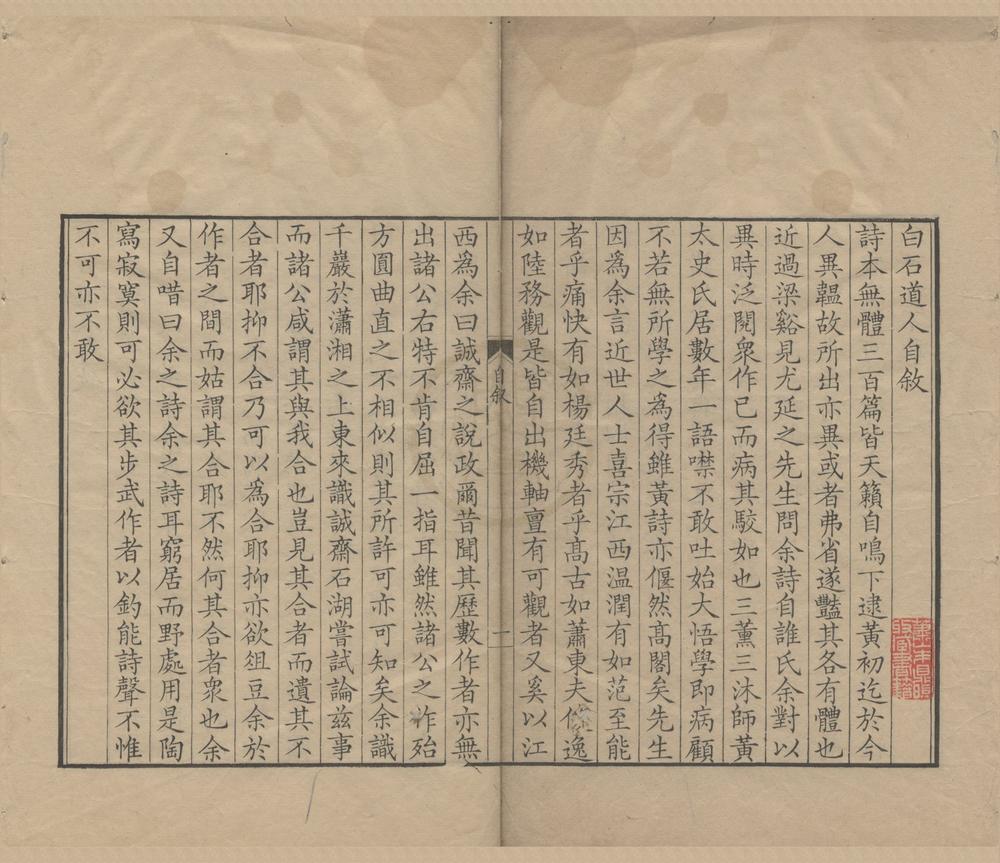 白石道人自敘
詩本無體三百篇皆天籟自鳴下逮黃初迄於今
人異韞故所出亦異或者弗省遂豓其各有體也
近過梁谿見尤延之先生問余詩自誰氏余對以
異時泛閱衆作已而病其駮如也三薰三沐師黃
太史氏居數年一語噤不敢吐始大悟學即病顧
不若無所學之為得雖黃詩亦偃然髙閣矣先生
因為余言近世人士喜宗江西温潤有如范至能
者乎痛快有如楊廷秀者乎髙古如蕭東夫俊逸
如陸務觀是皆自出機軸亶有可觀者又奚以江
自敘
一
西為余曰誠齋之說政爾昔聞其歷數作者亦無
出諸公右特不肯自屈一指耳雖然諸公之作殆
方圓曲直之不相似則其所許可亦可知矣余識
千巖於瀟湘之上東來識誠齋石湖嘗試論茲事
而諸公咸謂其與我合也豈見其合者而遺其不
合者耶抑不合乃可以為合耶抑亦欲俎豆余於
作者之間而姑謂其合耶不然何其合者衆也余
又自唶曰余之詩余之詩耳窮居而野處用是陶
寫寂寞則可必欲其步武作者以釣能詩聲不惟
不可亦不敢